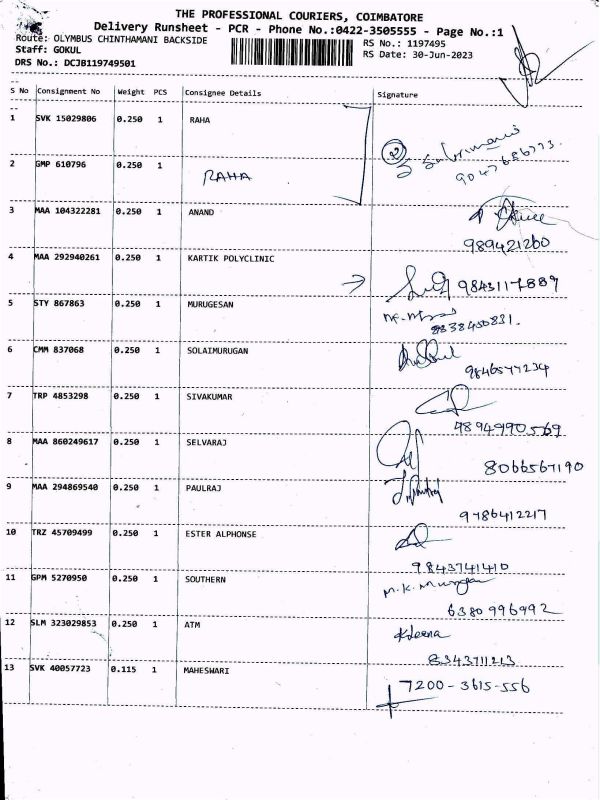 THE PROFESSIONAL COURIERS, COIMBATORE
Delivery Runsheet - PCR - Phone No.:0422-3505555 - Page No.:1
Route: OLYMBUS CHINTHAMANI BACKSIDE RS No.: 1197495
Staff: GOKUL RS Date: 30-Jun-2023
DRS No.: DCJB119749501
S No Consignment No Weight PCS Consignee Details Signature
1 SVK 15029806 0.250 1 RAHA
2 GMP 610796 0.250 1 RAHA
3 MAA 104322281 0.250 1 ANAND
989421260
4 MAA 292940261 0.250 1 KARTIK POLYCLINIC
9843117889
5 STY 867863 0.250 1 MURUGESAN
8838450831.
6 CMM 837068 0.250 1 SOLAIMURUGAN
9846577234
7 TRP 4853298 0.250 1 SIVAKUMAR
9894990569
8 MAA 860249617 0.250 1 SELVARAJ
8066567190
9 MAA 294869540 0.250 1 PAULRAJ
9786412217
10 TRZ 45709499 0.250 1 ESTER ALPHONSE
9843741410
11 GPM 5270950 0.250 1 SOUTHERN
M.K. Murugan
6380996992
12 SLM 323029853 0.250 1 ATM
8343711213
13 SVK 40057723 0.115 1 MAHESWARI
7200-3615-556